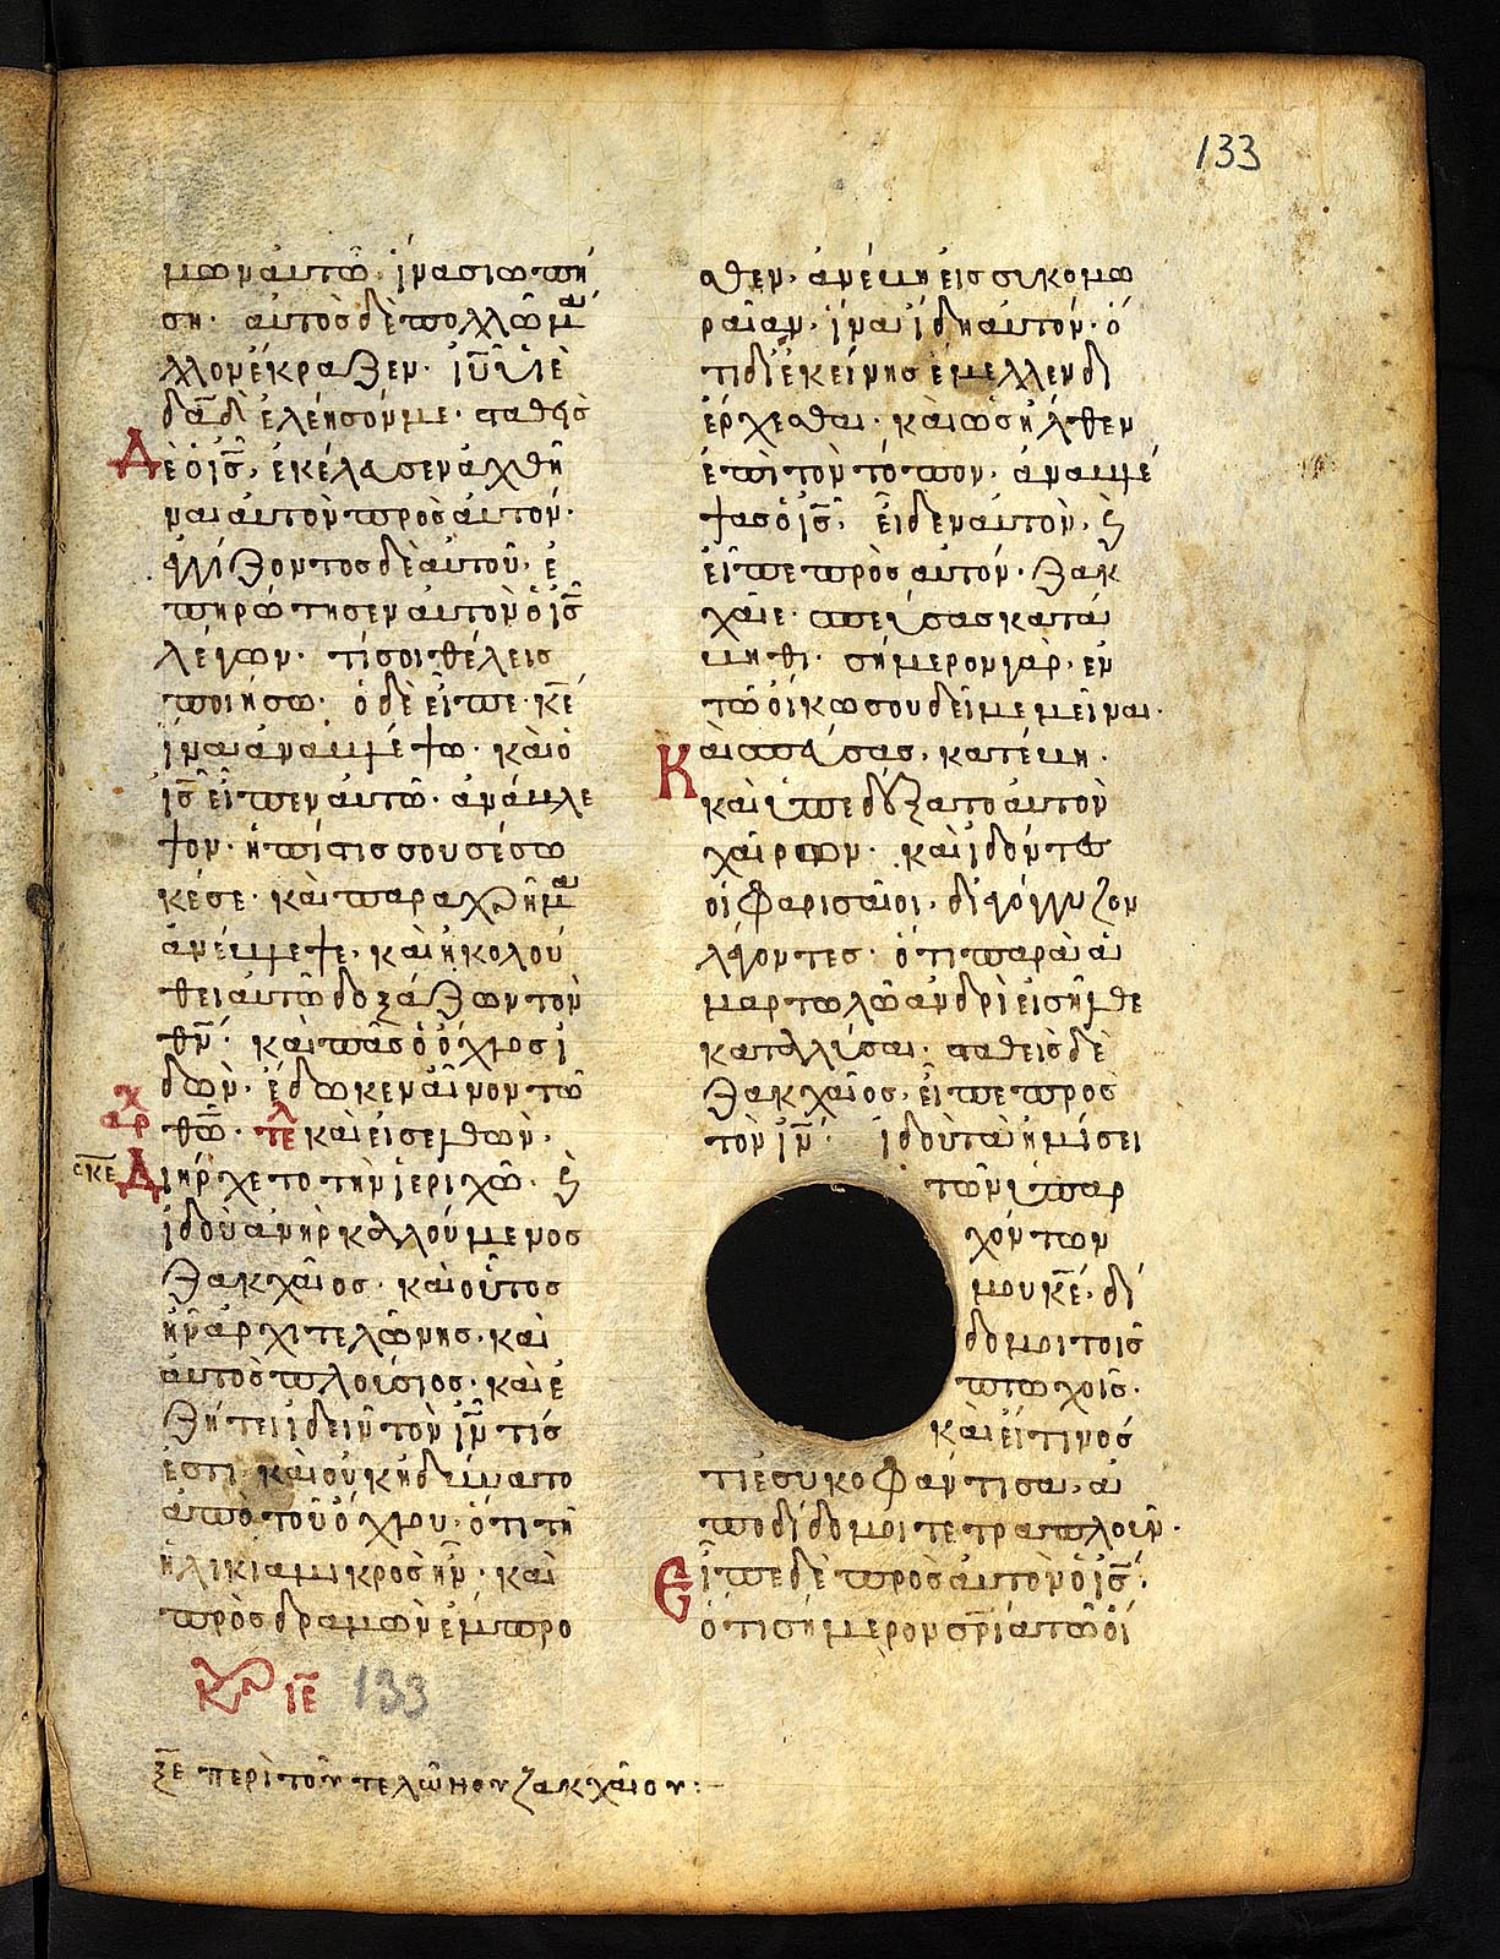 133
μων αυτῶ· ἵνα σιωπή
ση· αὐτὸς δὲ πολλῶ μᾶ
λλον έκραζεν· ἰῦ υἱὲ
δᾱδ ἐλέησόν με· σταθεὶς
Δὲ ὁ ἰς̄, ἐκέλευσεν ἀχθῆ
ναι αυτὸν πρὸς ἀυτόν·
ἐγγίζοντος δὲ ἀυτοῦ, ἐ
πηρώτησεν ἀυτὸν ὁ ἰς̄
λέγων· τί σοι θέλεις
ποιήσω· ὁ δὲ εἶπε· κ̄ε
ἵνα ἀναβλέψω· καὶ ὁ
ἰς̄ εἶπεν ἀυτῶ· ἀνάβλε
ψον· ἡ πίστις σου σέσω
κέ σε· καὶ παραχρῆμα
ἀνέβλεψε, καὶ ἠκολού
θει ἀυτῶ δοξάζων τὸν
θν̄· καὶ πᾶς ὁ ὄχλος ἰ
δὼν, ἔδωκεν αἶνον τῶ
χ
αρ
θω̄· τελ καὶ εἰσελθὼν,
σκε Διήρχετο τὴν ἰεριχῶ· καὶ
ἰδοὺ ἀνὴρ καλλούμενος
Ζακχαῖος· καὶ οὗτος
ἦν ἀρχιτελώνης· καὶ
ἀυτὸς πλούσιος· καὶ ἐ
ζήτει ἰδεῖν τὸν ἰν̄ τίς
ἐστι· καὶ οὐκ ἠδύνατο
ἀπὸ τοῦ ὄχλου· ὅτι τῆ
ἡλικία μικρὸς ἦν· καὶ
πρὸςδραμὼν ἔμπρο
σθεν, ἀνέβη εἰς συκομω
ραίαν, ἵνα ἴδη αυτόν· ὅ
τι δι' ἐκείνης ἔμελλεν δι
έρχεσθαι· καὶ ὡς ἦλθεν
ἐπὶ τὸν τόπον, ἀναβλέ
ψας ὁ ἰς̄, εἶδεν αυτὸν, καὶ
εἶπε πρὸς αυτόν· Ζακ
χαῖε· σπεύσας κατά
βηθι· σήμερον γὰρ, ἐν
τῶ οἴκω σου δεῖ με μεῖναι·
Καὶ σπεύσας, κατέβη·
καὶ ὑπεδέξατο ἀυτὸν
χαίρων· καὶ ἰδόντες
οἱ Φαρισαῖοι, διεγόγγυζον
λέγοντες· ὅτι παρὰ ἁ
μαρτωλῶ ἀνδρὶ εἰσῆλθε
καταλῦσαι· σταθεὶς δὲ
Ζακχαῖος, εἶπε προς
τὸν ἰν̄· ἰδοὺ τὰ ἡμίσει
τῶν ὑπαρ
χόντων
μου κ̄ε, δί
δομοι τοῖς
πτωχοῖς·
καὶ εἴ τινός
τι ἐσυκοφάντισα, ἀ
ποδίδομοι τετραπλοῦν·
Εἶπε δὲ πρὸς ἀυτὸν ὁ ἰς̄·
ὅτι σήμερον σρ̄ία τῶ οἰ
Κυρ ιε̄ 133
ξ̄ε περὶ τοῦ τελώνου ζακχαίου:—